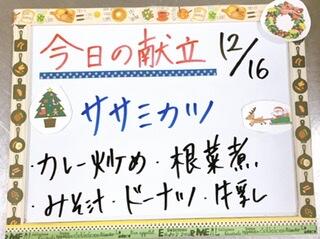 今日の献立 12/16
ササミカツ
・カレー炒め・根菜煮
・みそ汁・ドーナツ・牛乳